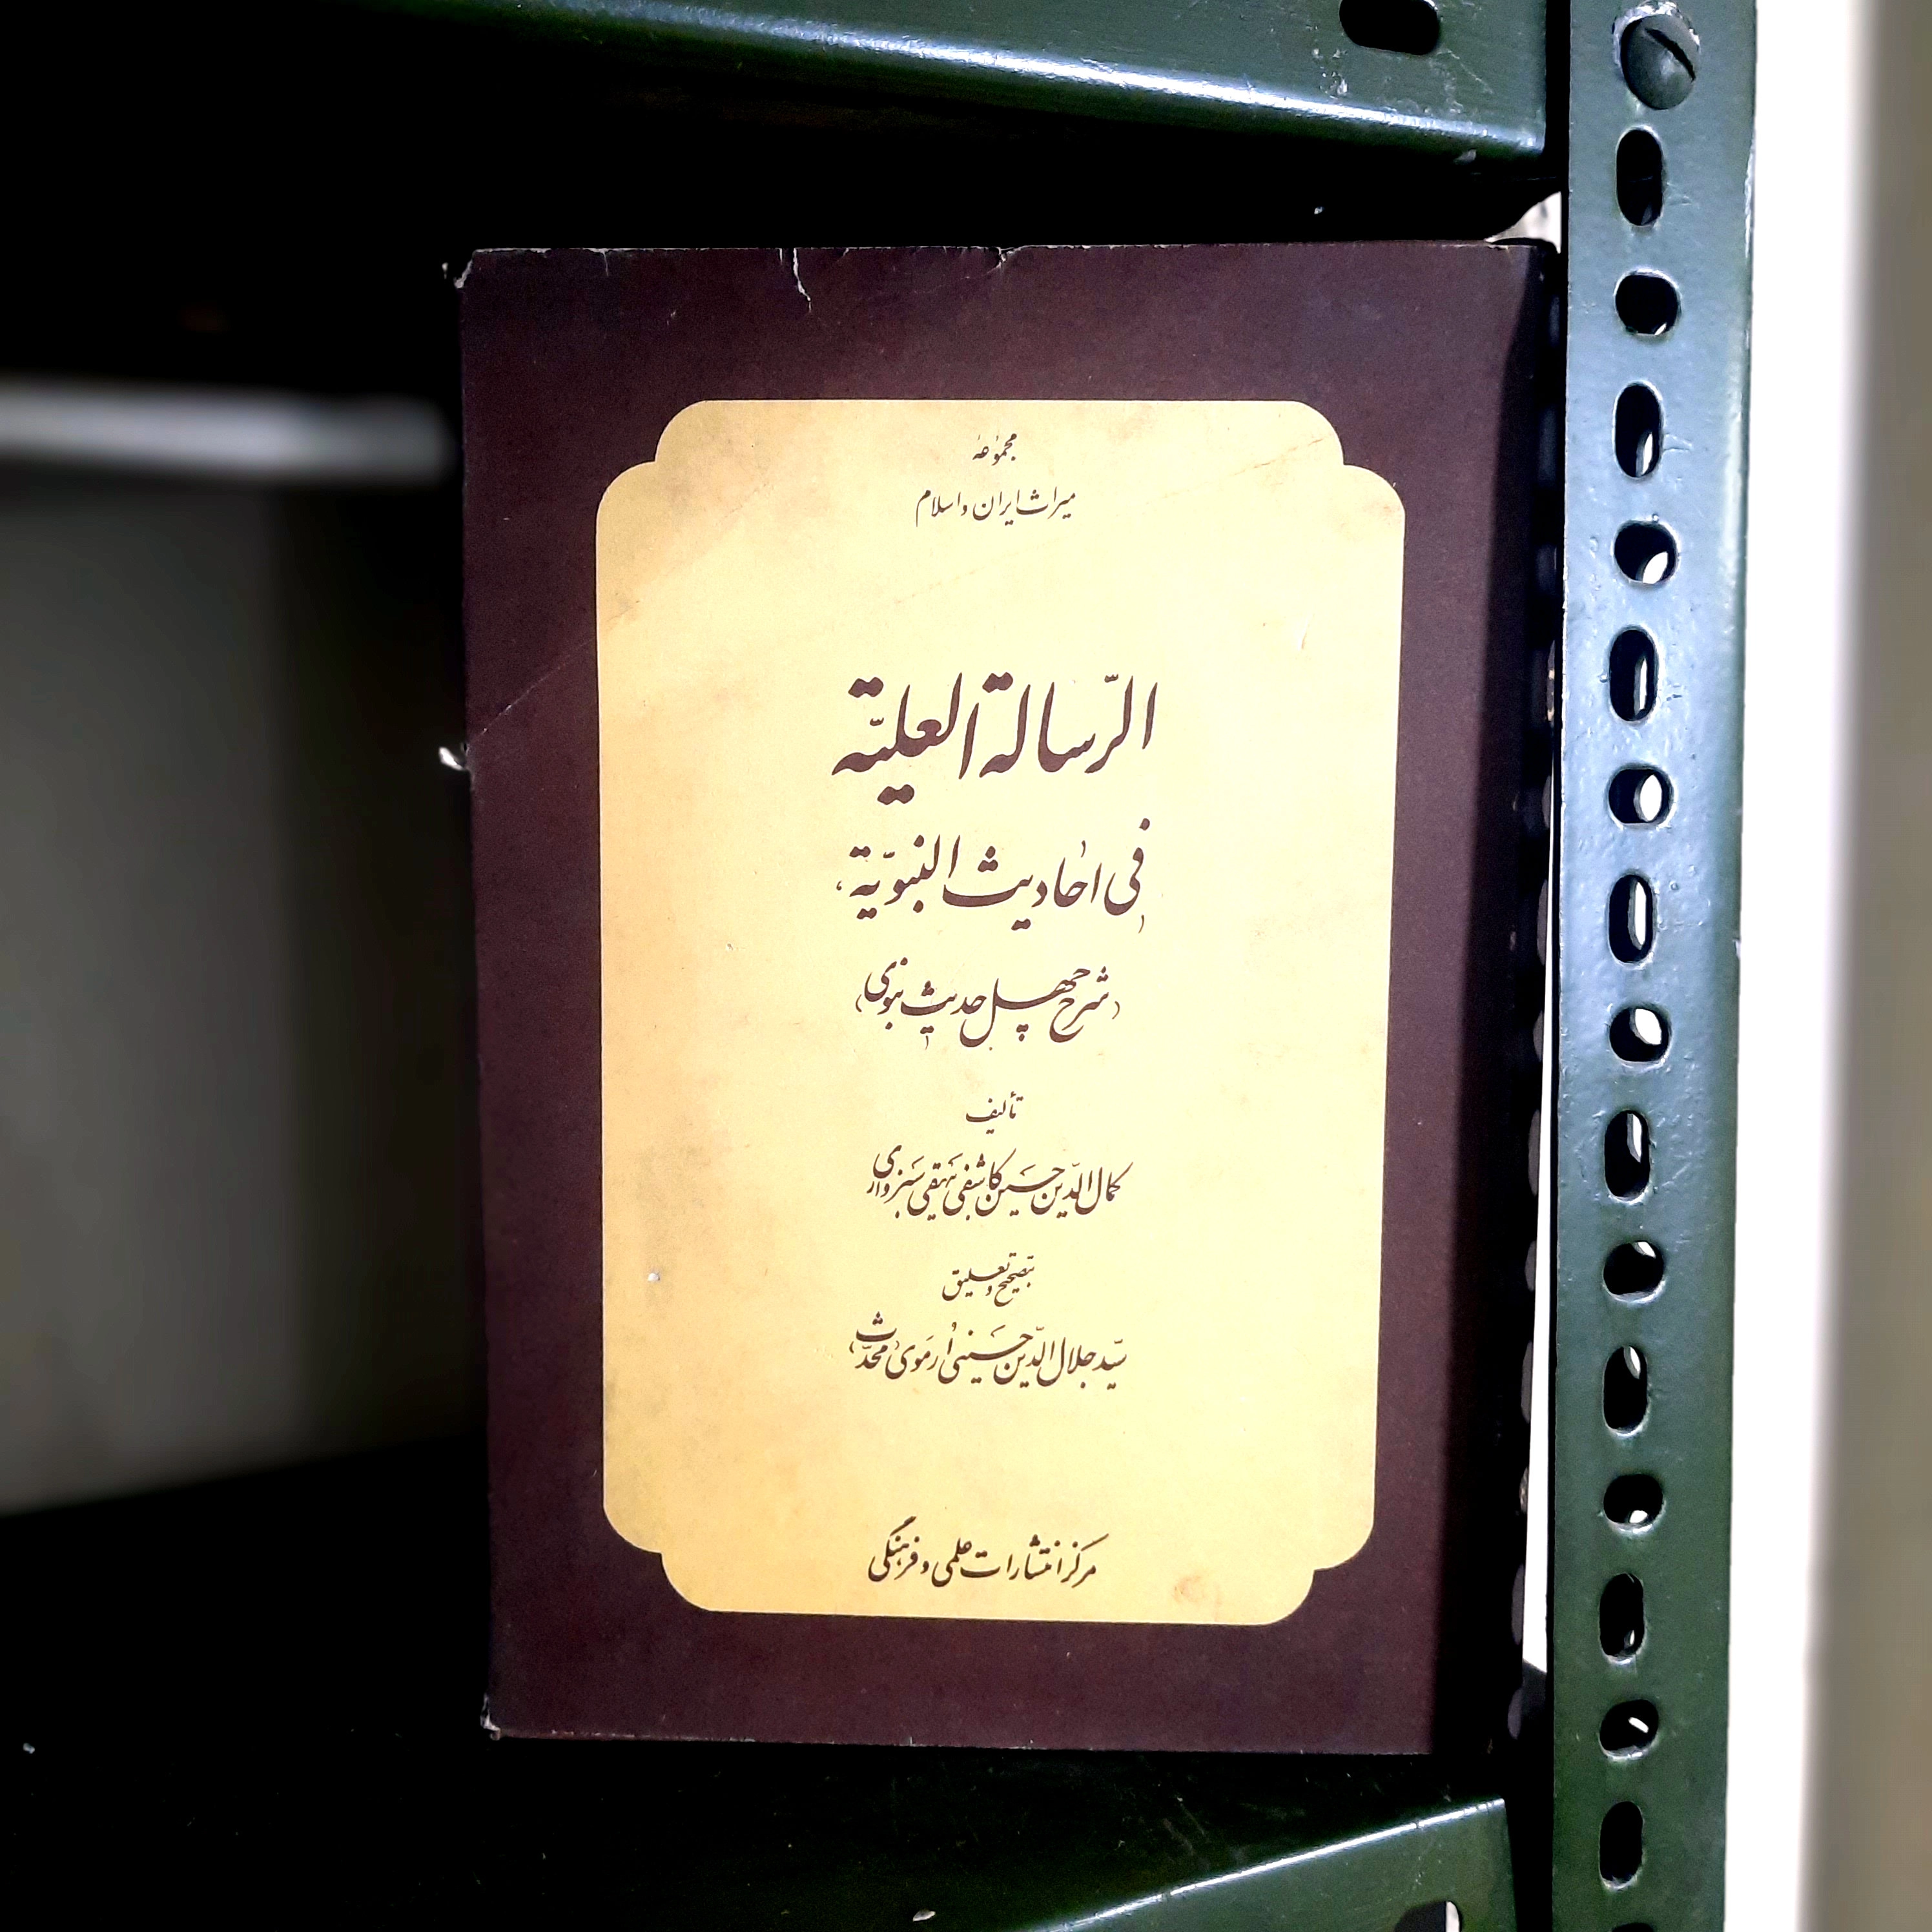 مجموعهٔ
میراث ایران و اسلام
الرّسالة العلیّة
فی احادیث النبویّة
(شرح چهل حدیث نبوی)
تألیف
کمال‌الدّین حسین کاشفی بیهقی سبزواری
بتصحیح و تعلیق
سیّد جلال‌الدّین حسینی اُرمَوی «محدّث»
مرکز انتشارات علمی و فرهنگی